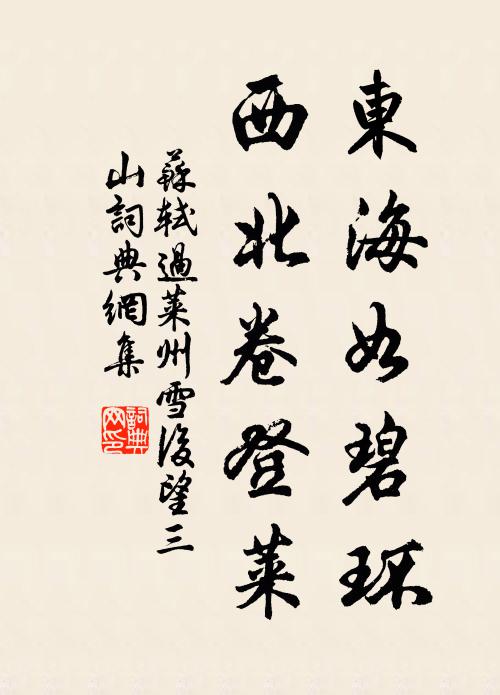 東海如碧環
西北卷登萊
蘇軾過萊州雪後望三
山詞典網集
詞典
网印